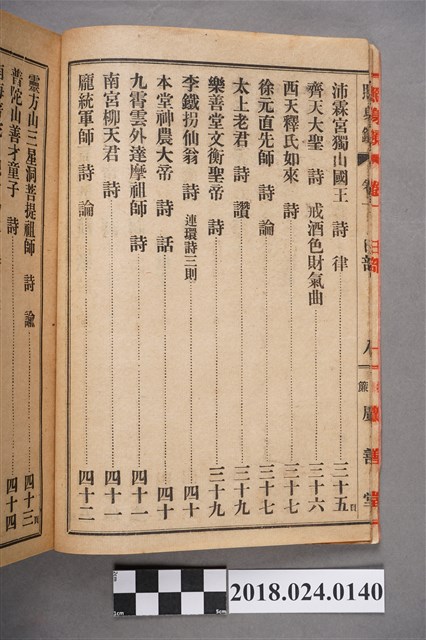 沛霖宮獨山國王 詩 律 三十五頁
齊天大聖 詩 戒酒色財氣曲 三十六
西天釋氏如來 詩 三十七
徐元直先師 詩 論 三十七
太上老君 詩 讚 三十九
樂善堂文衡聖帝 詩 三十九
李鐵拐仙翁 詩 連環詩三則 四十
本堂神農大帝 詩 話 四十
九霄雲外達摩祖師 詩 四十一
南宮柳天君 詩 四十一
龐統軍師 詩 論 四十二
靈方山三星洞菩提祖師 詩 論 四十三頁
普陀山善才童子 詩 四十四
善堂
2018.024.0140
1cm
5cm